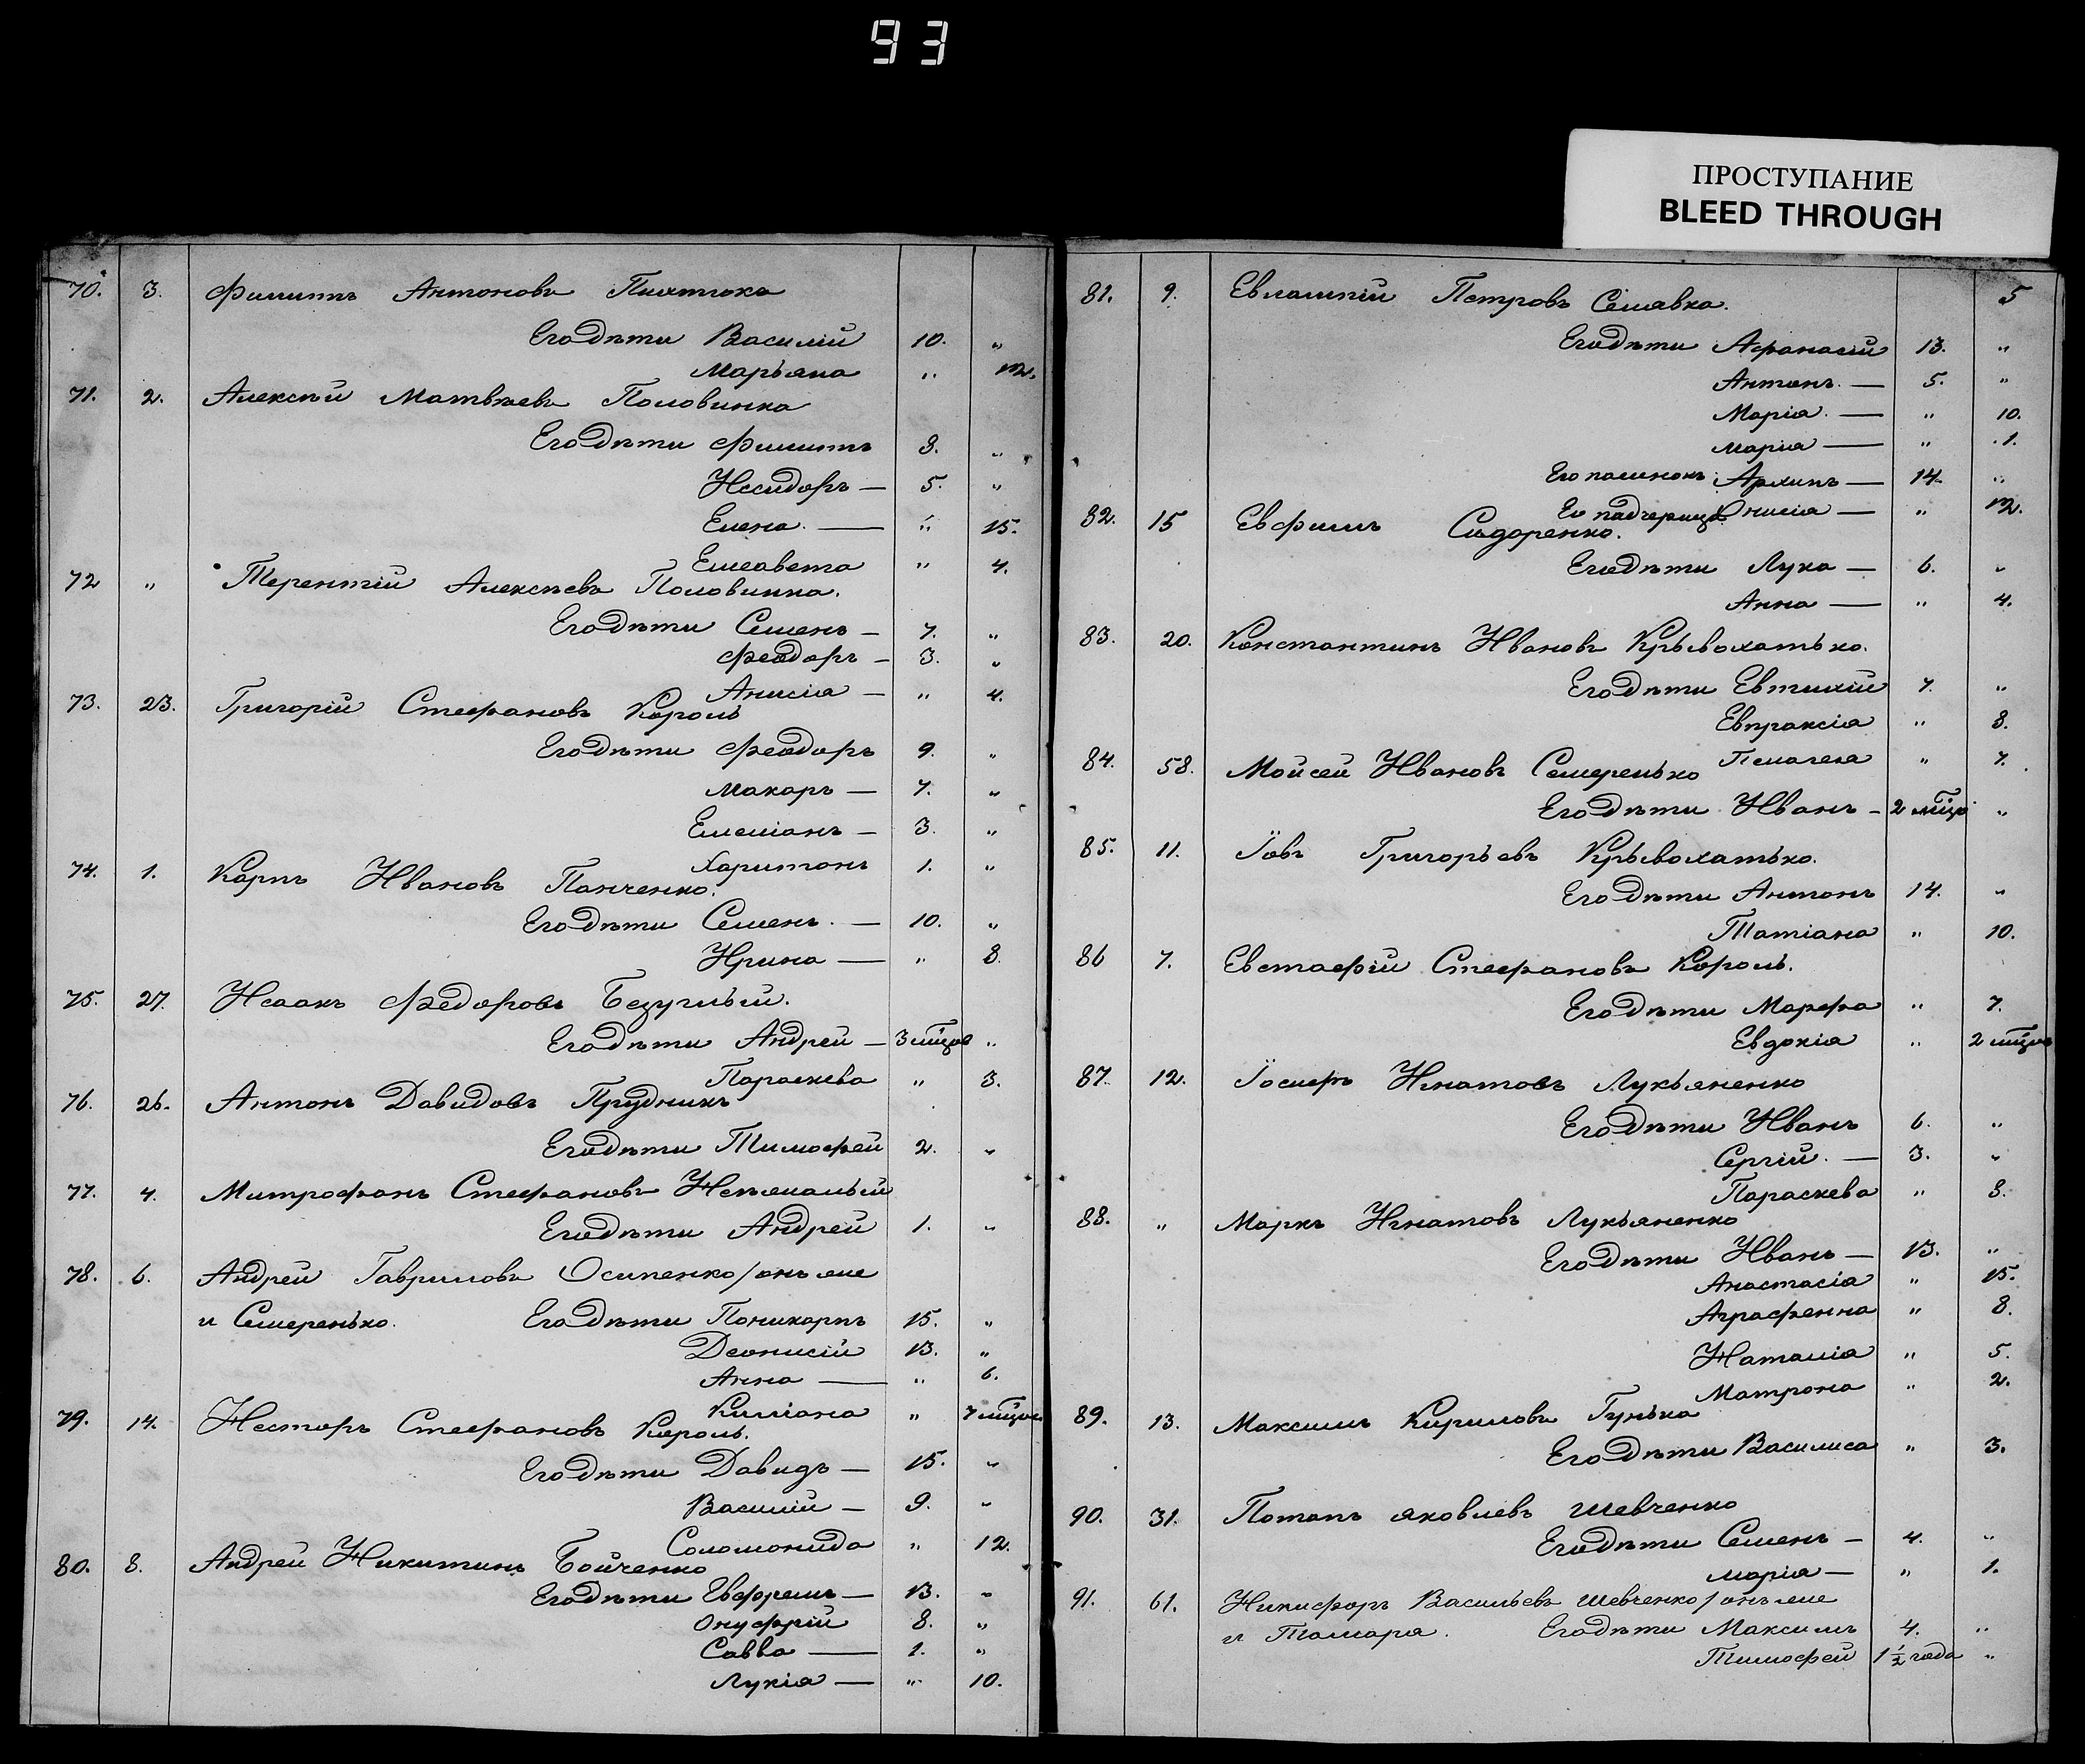 93
ПРОСТУПАНИЕ
BLEED THROUGH
70. 3. Филиппъ Антоновъ
Его дѣти Василій 10. "
Марьяна " 12.
71. 2. Алексѣй Матвѣевъ Половинка
Его дѣти Филиппъ 8. "
Исидоръ — 5. "
Елена — " 15.
Елисавета " 4.
72 " Терентій Алексѣевъ Половинка.
Его дѣти Семенъ — 7. "
Феодоръ — 3. "
Анисія — " 4.
73. 23. Григорій Стефановъ Король
Его дѣти Феодоръ 9. "
Макаръ — 7. "
Емеліанъ — 3. "
Харитонъ 1. "
74. 1. Карпъ Ивановъ Панченко.
Его дѣти Семенъ. — 10. "
Ирина — " 8.
75. 27. Исаакъ Федоровъ Безуглый.
Его дѣти Андрей — 3 мѣцов "
Параскева " 3.
76. 26. Антонъ Давидовъ Прудникъ
Его дѣти Тимофей 2. "
77. 4. Митрофанъ Стефановъ
Его дѣти Андрей 1. "
78. 6. Андрей Гавриловъ Осипенко/онъ же
и Семеренько. Его дѣти Поликарпъ 15. "
Деонисій 13. "
Анна — " 6.
" 7 мѣцов
79. 14. Несторъ Стефановъ Король.
Его дѣти Давидъ — 15. "
Василій — 9. "
Соломонида " 12.
80. 8. Андрей Никитинъ Бойченко
Его дѣти Евфремъ — 13. "
Онуфрій 8. "
Савва — 1. "
Лукія — " 10.
81. 9. Евлампій Петровъ Сѣлявка. 5
Его дѣти Афанасій 13. "
Антонъ. — 5. "
Марія. — " 10.
Марія — " 1.
Его пасинокъ Архипъ — 14. "
Ео падчерица Онисія — " 12.
82. 15 Евфимъ Сидоренко.
Его дѣти Лука — 6. "
Анна — " 4.
83. 20. Константинъ Ивановъ Крывохатько.
Его дѣти Евтихій 7. "
Евпраксія " 8.
Пелагея " 7.
84. 58. Мойсей Ивановъ Семеренько
Его дѣти Иванъ — 2 мѣцо "
85. 11. Іовъ Григорьевъ Крывохатько.
Его дѣти Антонъ 14. "
Татіана " 10.
86 7. Евстафій Стефановъ Король.
Его дѣти Марфа " 7.
Евдокія " 2 мѣцов
87. 12. Іосифъ Игнатовъ Лукьяненко
Его дѣти Иванъ 6. "
Сергій. — 3. "
Параскева " 8.
88. " Маркъ Игнатовъ Лукьяненко
Его дѣти Иванъ — 13. "
Анастасія " 15.
Аграфенна " 8.
Наталія " 5.
Матрона " 2.
89. 13. Максимъ Кириловъ Гунька
Его дѣти Василиса " 3.
90. 31. Потапъ Яковлевъ Шевченко
Его дѣти Семенъ — 4. "
Марія — " 1.
91. 61. Никифоръ Васильевъ Шевченко/онъ же
и Тамара. Его дѣти Максимъ 4. "
Тимофей 1 1/2 года "